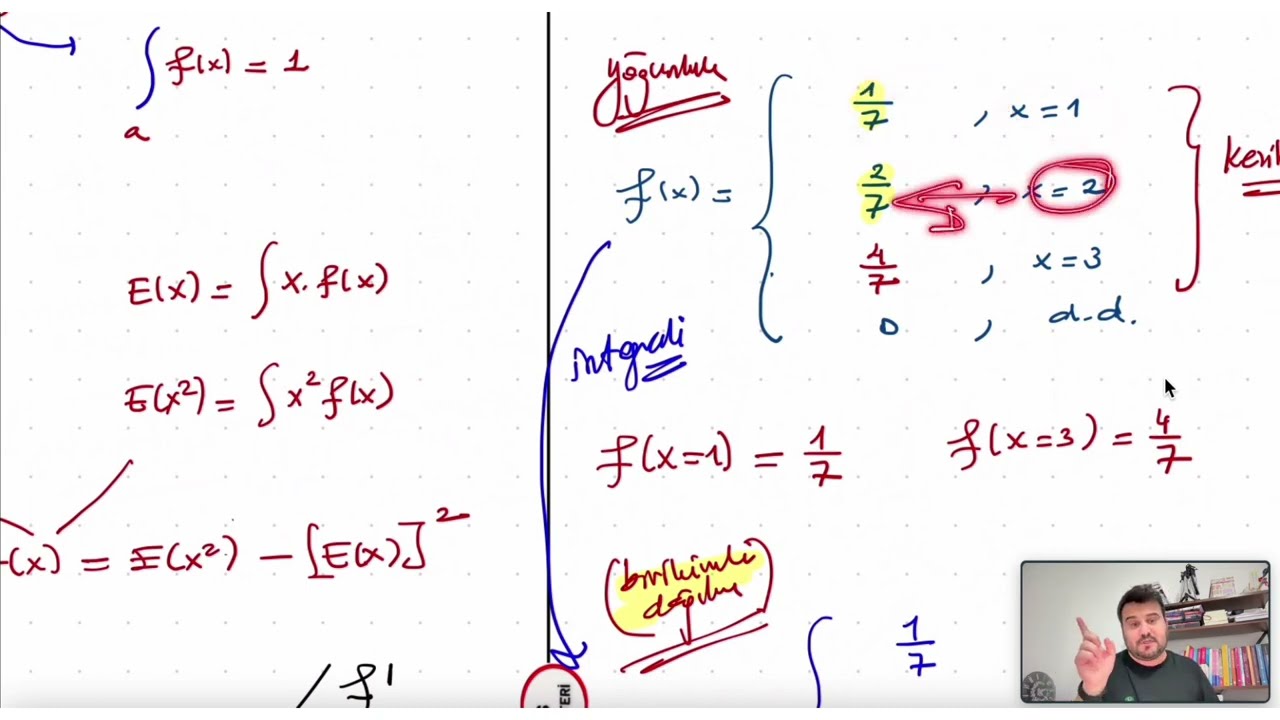 ∫ f(x) = 1
a
E(x) = ∫ x. f(x)
E(x²) = ∫ x² f(x)
(x) = E(x²) - [E(x)]²
/ f'
yoğunluk
f(x) = {
1/7 , x = 1
2/7 , x = 2
D
4/7 , x = 3
0 , d.d.
kesik
integrali
f(x=1) = 1/7
f(x=3) = 4/7
birikimli
dağılım
1/7
TERİ